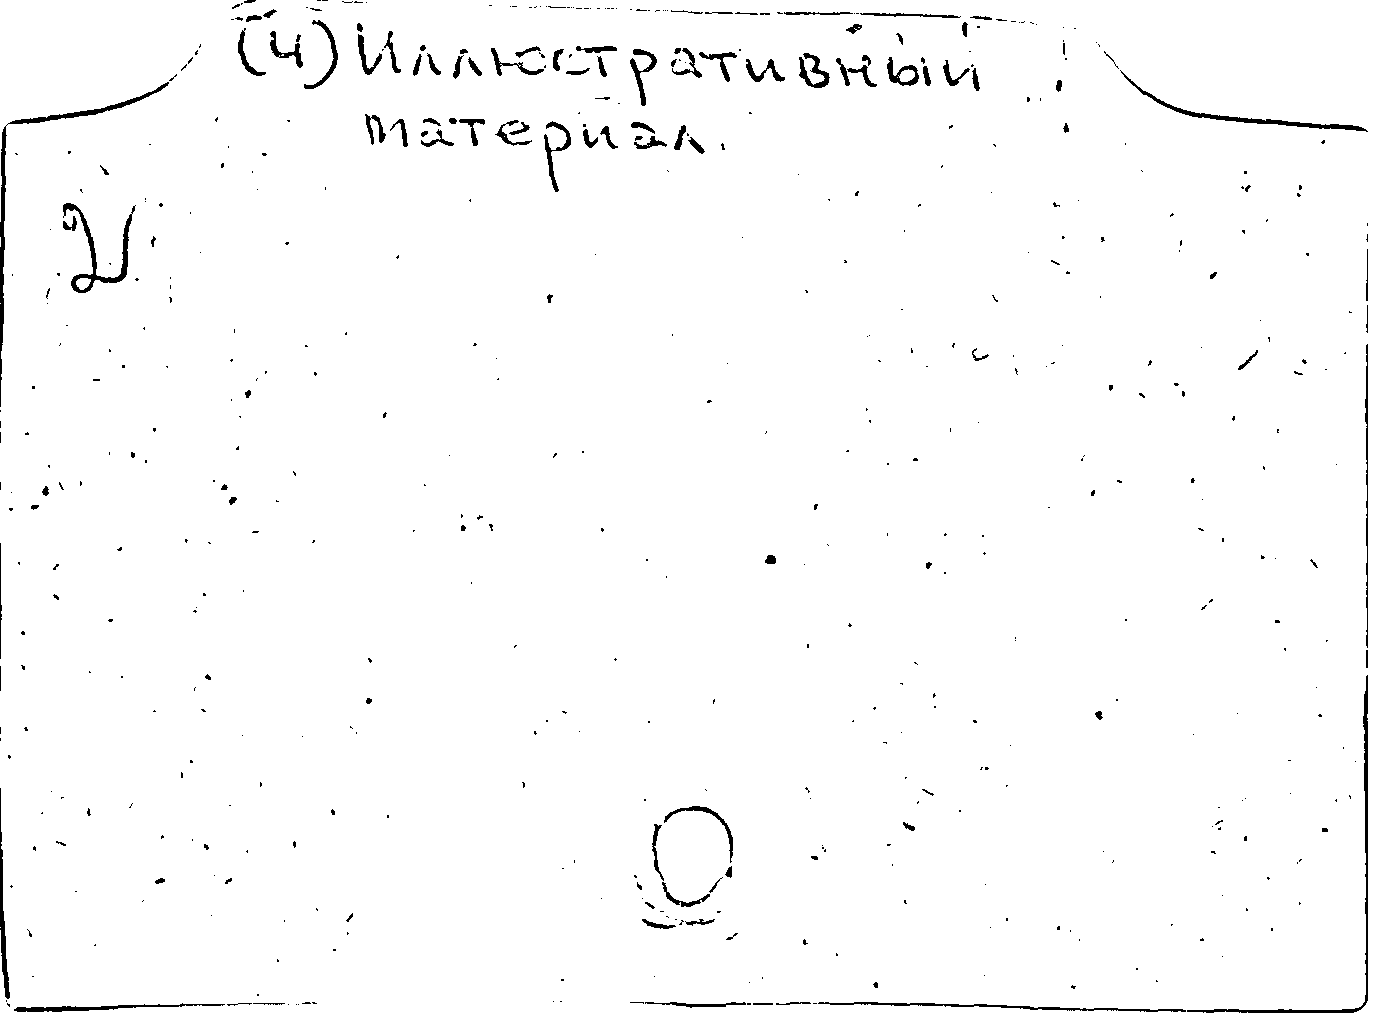 (4) Иллюстративный
материал.